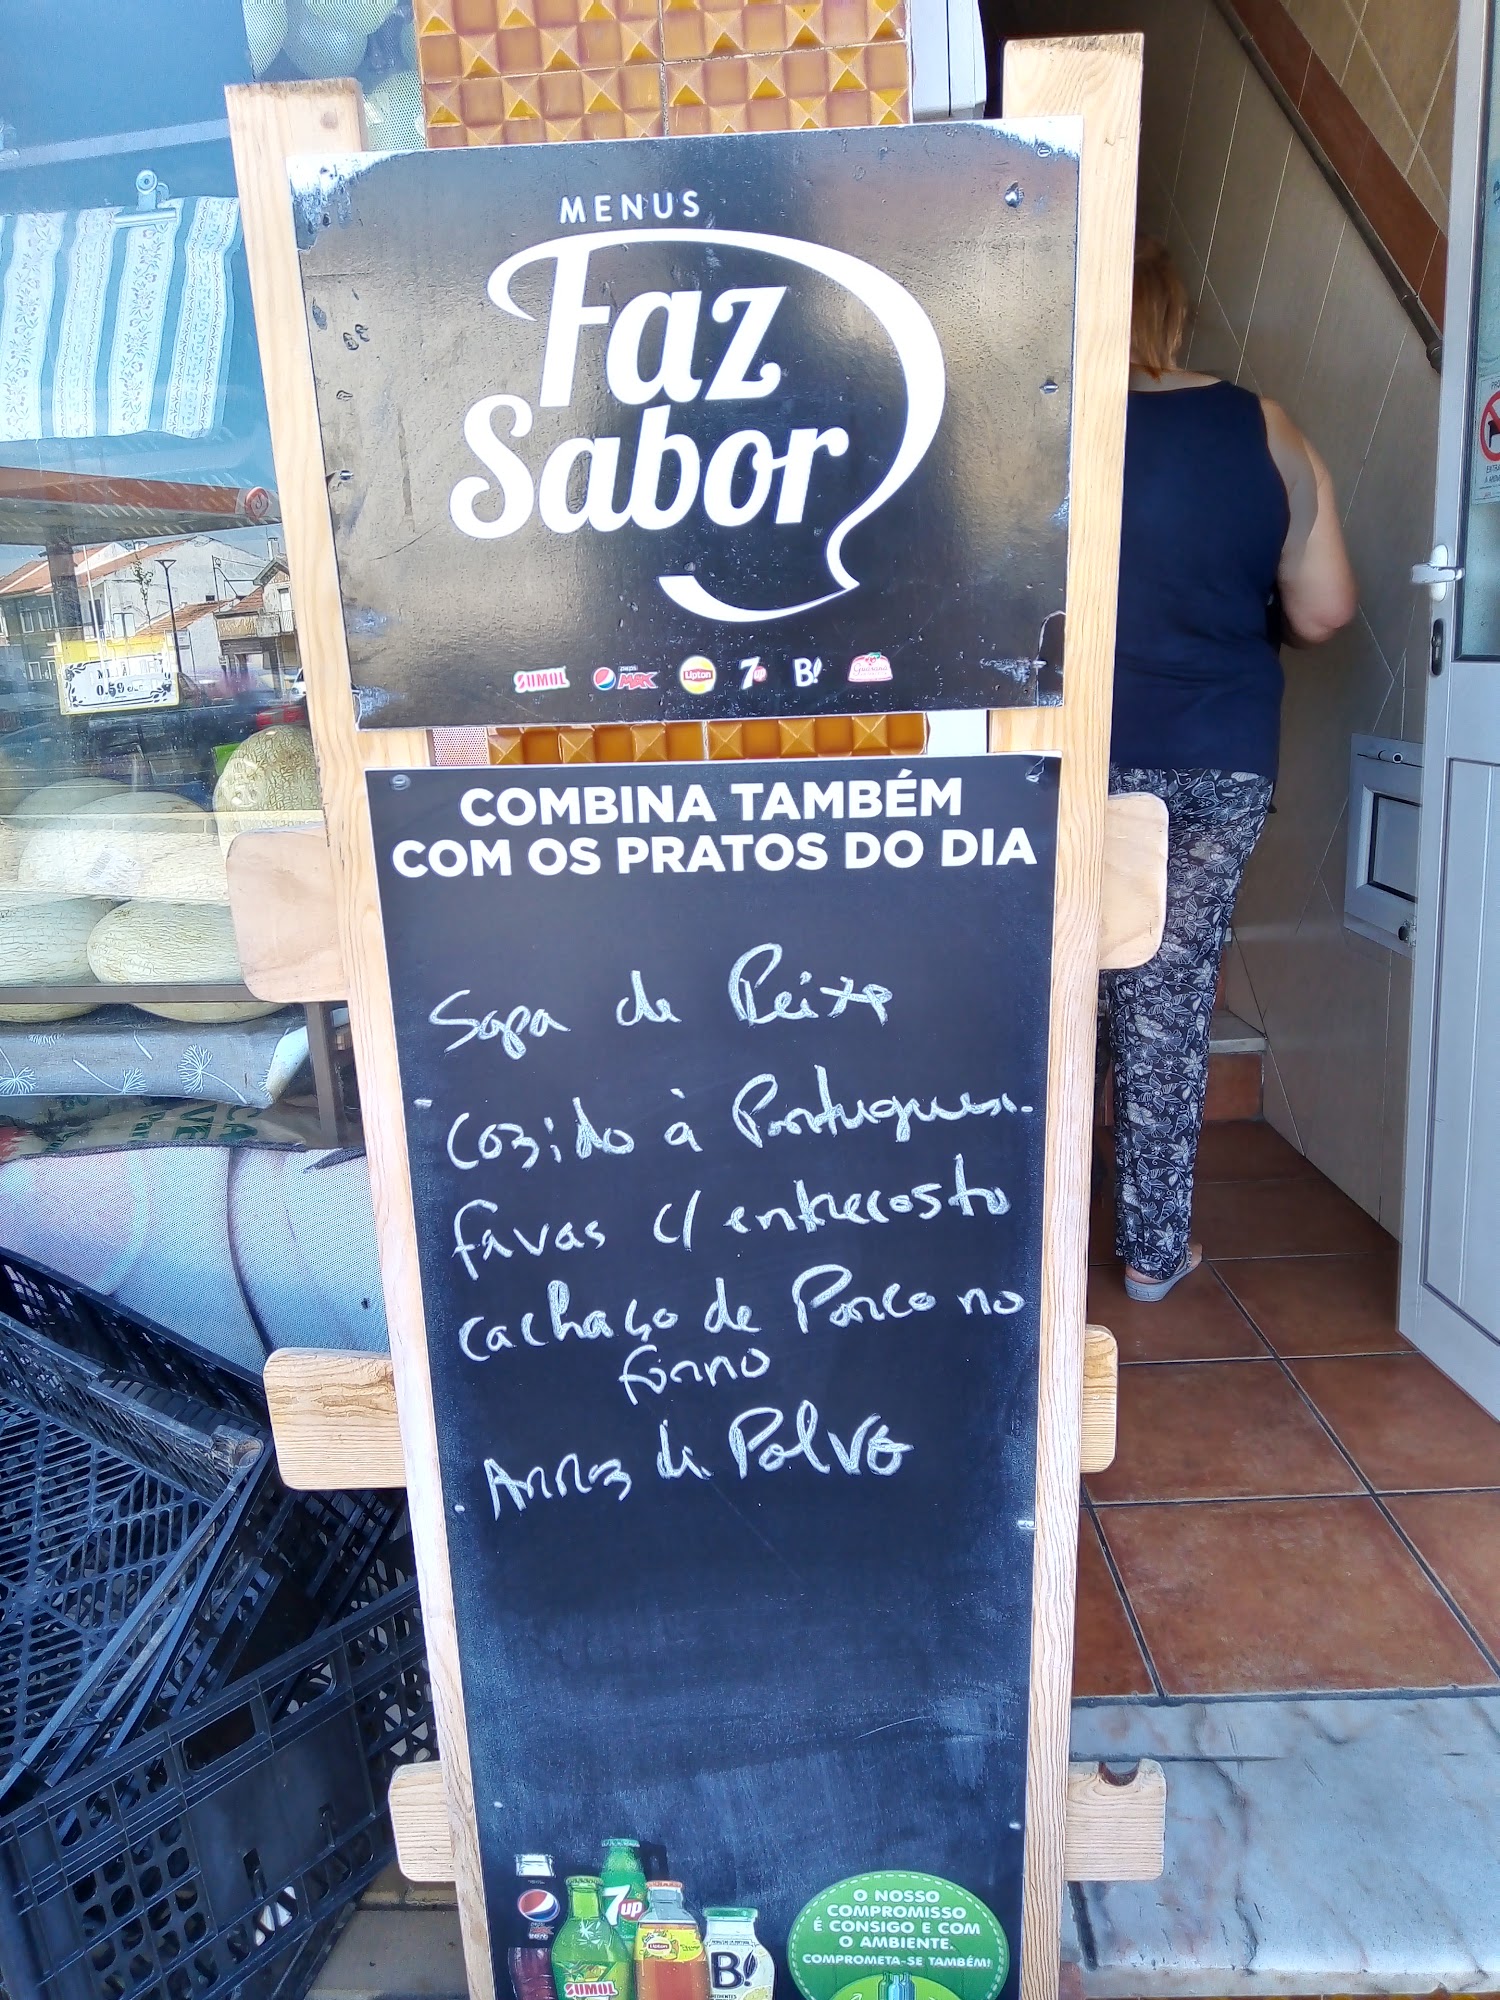 MENUS
Faz
Sabor
SUMOL pepsi MAX Lipton 7up B! Guaraná
COMBINA TAMBÉM
COM OS PRATOS DO DIA
Sopa de Peixe
Cozido à Portuguesa.
Favas c/ entrecosto
Cachaço de Porco no
forno
Arroz de Polvo
O NOSSO
COMPROMISSO
É CONSIGO E COM
O AMBIENTE.
COMPROMETA-SE TAMBÉM!
7up
Lipton
B!
SUMOL
0.59